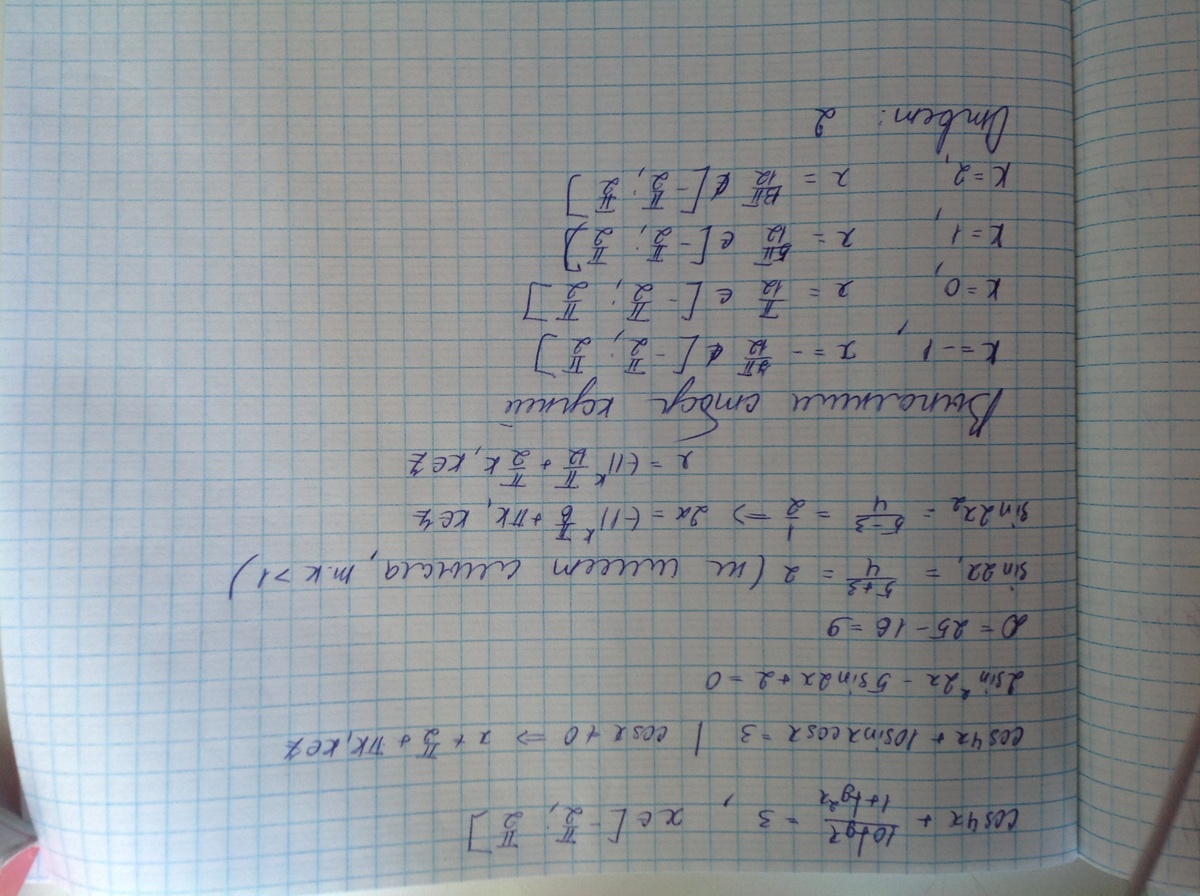 cos4x + 10tgx/(1+tg²x) = 3, x∈[-π/2; π/2]
cos4x + 10sinxcosx = 3 | cosx ≠ 0 ⇒ x ≠ π/2 + πk, k∈Z
2sin²2x - 5sin2x + 2 = 0
D = 25 - 16 = 9
sin2x₁ = (5+3)/4 = 2 (не имеет смысла, т.к >1)
sin2x₂ = (5-3)/4 = 1/2 ⇒ 2x = (-1)ᵏ π/6 + πk, k∈Z
x = (-1)ᵏ π/12 + π/2 k, k∈Z
Выполним отбор корней
k = -1, x = - 7π/12 ∉ [-π/2; π/2]
k = 0, x = π/12 ∈ [-π/2; π/2]
k = 1, x = 5π/12 ∈ [-π/2; π/2]
k = 2, x = 13π/12 ∉ [-π/2; π/2]
Ответ: 2